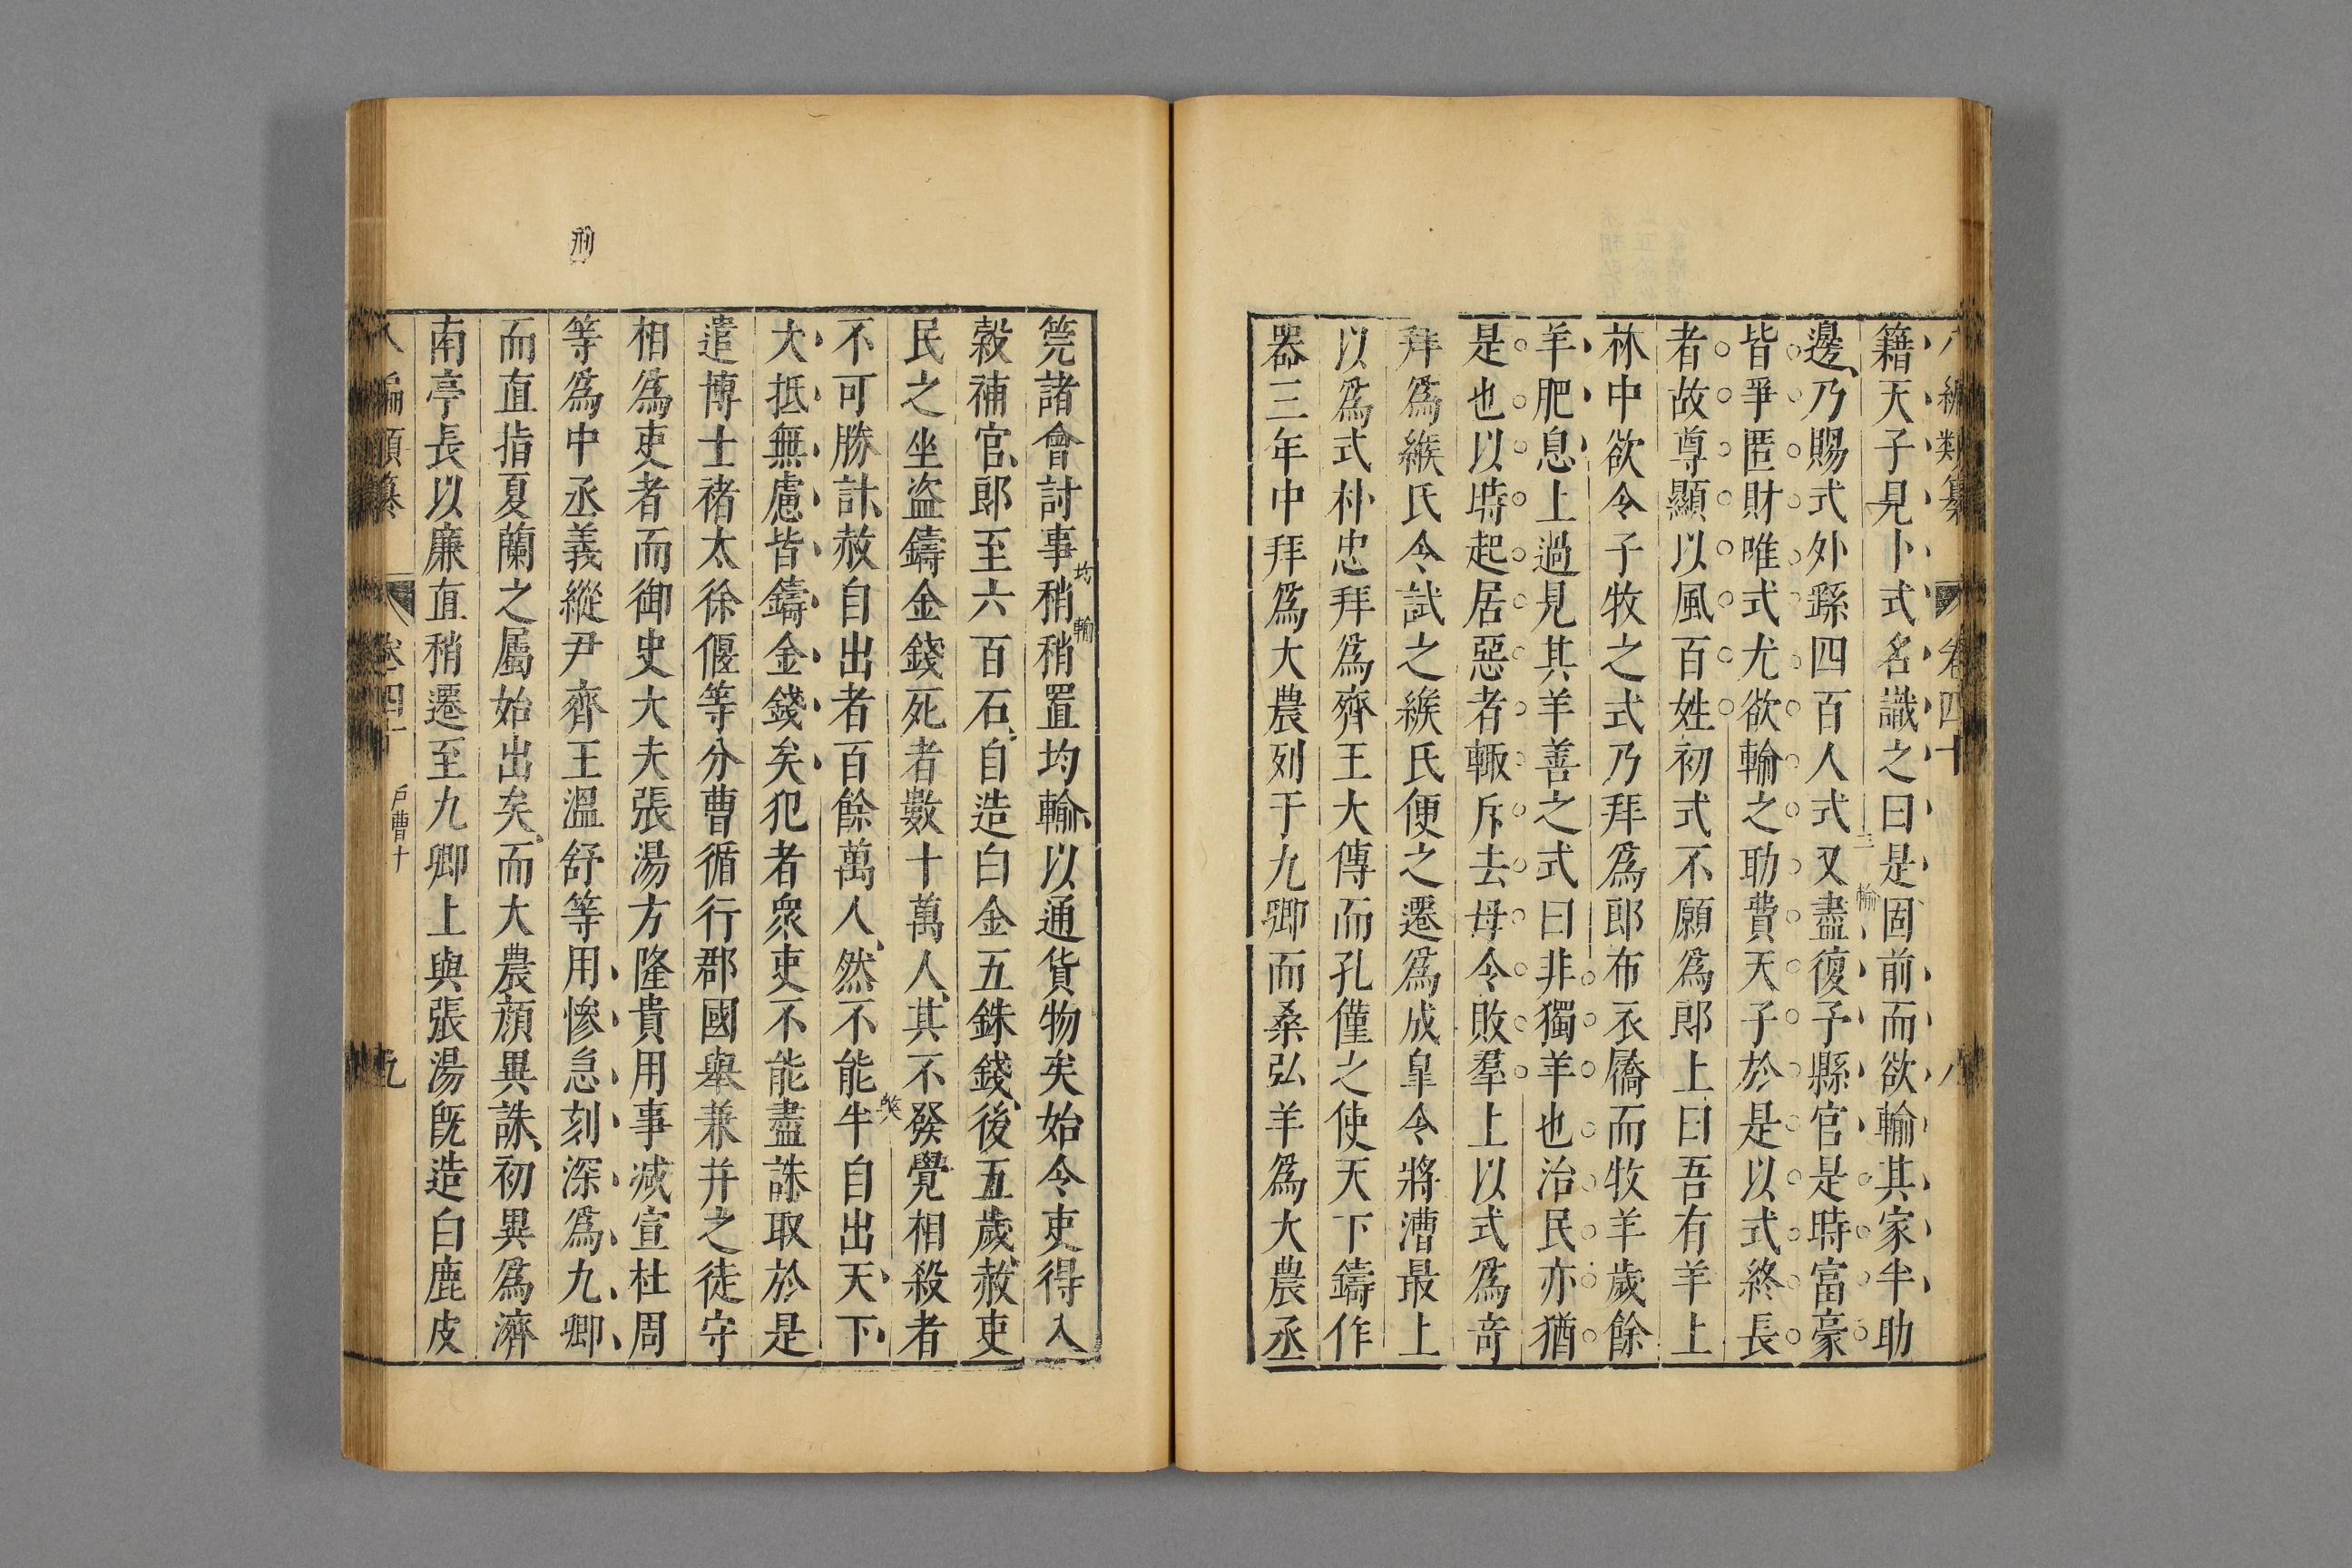 八編類纂 卷四十 八
籍天子見卜式名識之曰是固前而欲輸其家半助
邊乃賜式外繇四百人式又盡復予縣官是時富豪
皆爭匿財唯式尤欲輸之助費天子於是以式終長
者故尊顯以風百姓初式不願爲郎上曰吾有羊上
林中欲令子牧之式乃拜爲郎布衣屩而牧羊歲餘
羊肥息上過見其羊善之式曰非獨羊也治民亦猶
是也以時起居惡者輒斥去毋令敗羣上以式爲奇
拜爲緱氏令試之緱氏便之遷爲成臯令將漕最上
以爲式朴忠拜爲齊王大傅而孔僅之使天下鑄作
器三年中拜爲大農列于九卿而桑弘羊爲大農丞
筦諸會計事稍稍置均輸以通貨物矣始令吏得入
均輸
穀補官郎至六百石自造白金五銖錢後五歲赦吏
民之坐盜鑄金錢死者數十萬人其不發覺相殺者
不可勝計赦自出者百餘萬人然不能半自出天下
大抵無慮皆鑄金錢矣犯者衆吏不能盡誅取於是
遣博士褚太徐偃等分曹循行郡國舉兼并之徒守
相爲吏者而御史大夫張湯方隆貴用事减宣杜周
等爲中丞義縱尹齊王溫舒等用慘急刻深爲九卿
刑
而直指夏蘭之屬始出矣而大農顔異誅初異爲濟
南亭長以廉直稍遷至九卿上與張湯旣造白鹿皮
八編類纂 卷四十 戶曹十 九